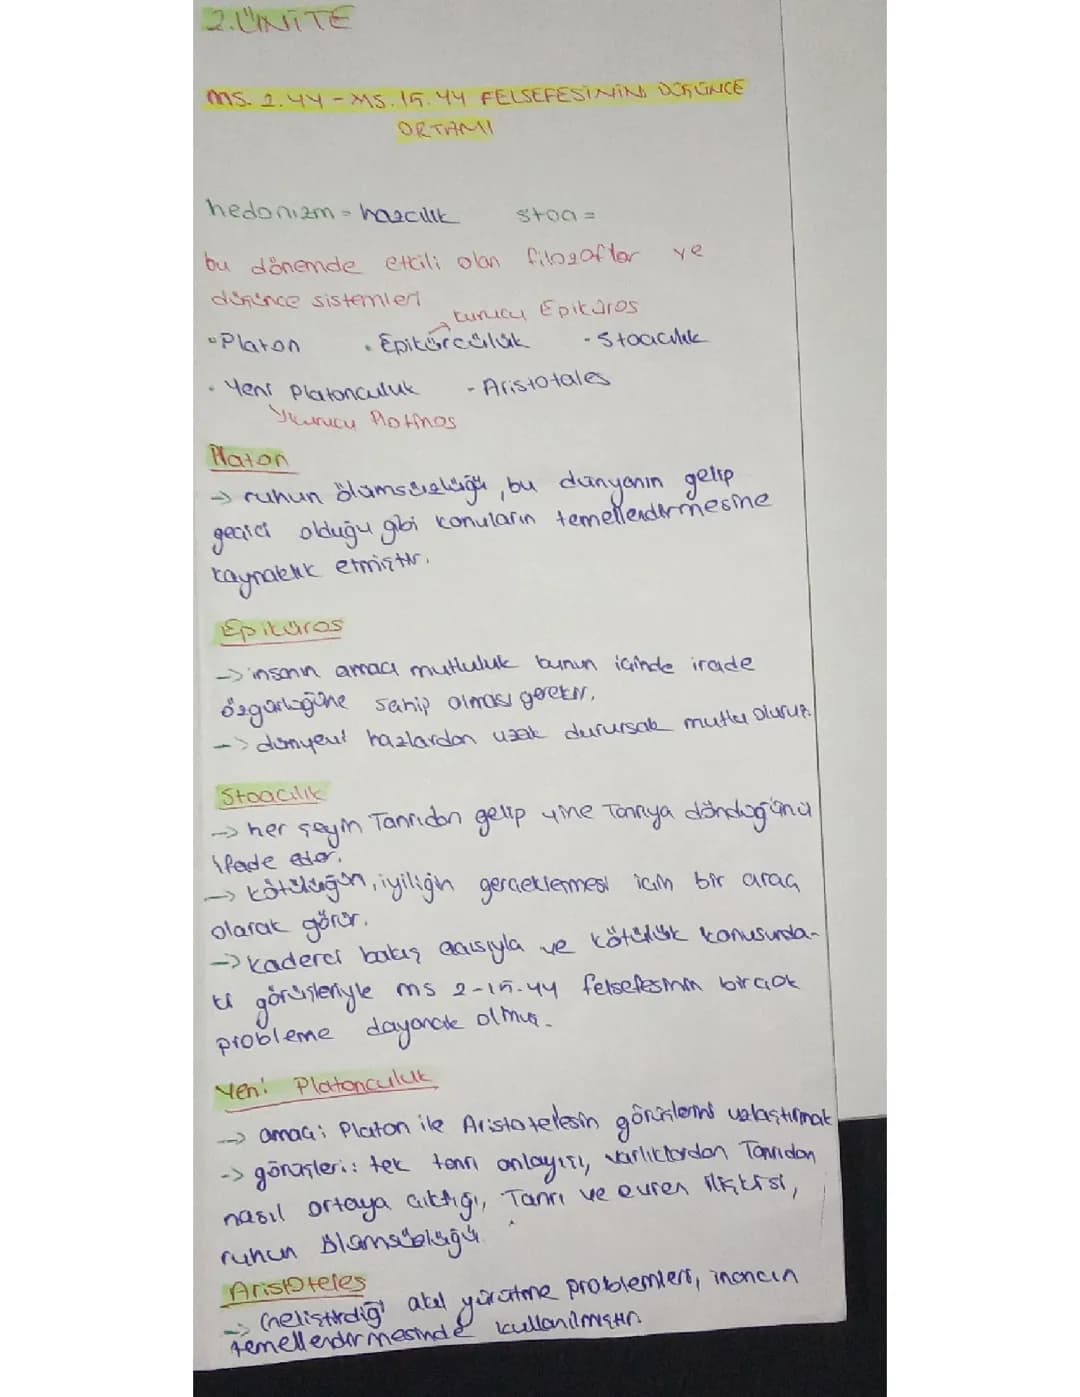 2.ÜNİTE
MS. 2.YY - MS. 15.YY FELSEFESİNİN DÜŞÜNCE
ORTAMI
hedonizm = hazcılık stoa =
bu dönemde etkili olan filozoflar ve
düşünce sistemleri
kurucu Epiküros
• Platon • Epikürcülük - Stoacılık
• Yeni Platonculuk - Aristotales
kurucu Plotinos
Platon
→ ruhun ölümsüzlüğü, bu dünyanın gelip
geçici olduğu gibi konuların temellendirmesine
kaynaklık etmiştir.
Epiküros
→ insanın amacı mutluluk bunun içinde irade
özgürlüğüne sahip olması gerekir.
→ dünyevi hazlardan uzak durursak mutlu oluruz.
Stoacılık
→ her şeyin Tanrıdan gelip yine Tanrıya döndüğünü
ifade eder.
→ kötülüğün, iyiliğin gerçekleşmesi için bir araç
olarak görür.
→ kaderci bakış açısıyla ve kötülük konusunda-
ki görüşleriyle ms 2-15.yy felsefesinin birçok
probleme dayanak olmuş.
Yeni Platonculuk
→ amacı: Platon ile Aristotelesin görüşlerini uzlaştırmak
→ görüşleri: tek tanrı anlayışı, varlıklardan Tanrıdan
nasıl ortaya çıktığı, Tanrı ve evren ilişkisi,
ruhun ölümsüzlüğü.
Aristoteles
→ Geliştirdiği akıl yürütme problemleri, inancın
temellendirmesinde kullanılmıştır.